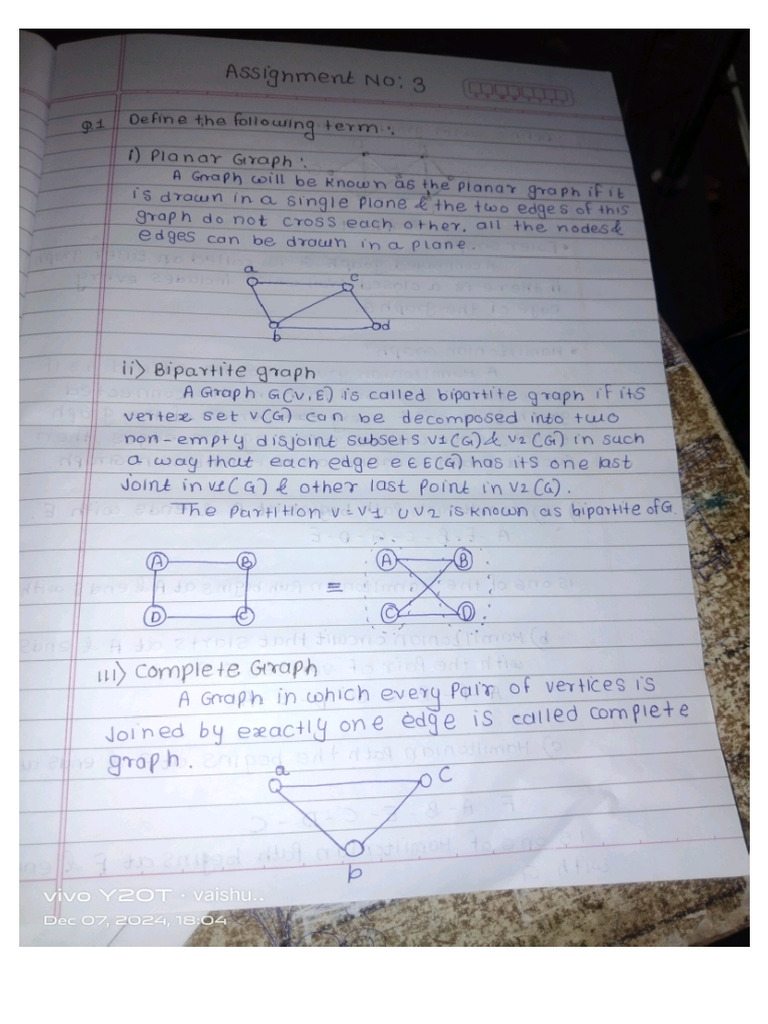 Assignment No: 3
Q.1 Define the following term:
i) Planar Graph:
A Graph will be known as the planar graph if it
is drawn in a single plane & the two edges of this
graph do not cross each other. all the nodes &
edges can be drawn in a plane.
a c
b d
ii) Bipartite graph
A Graph G(V,E) is called bipartite graph if its
vertex set V(G) can be decomposed into two
non-empty disjoint subsets V1(G) & V2(G) in such
a way that each edge e∈E(G) has its one last
Joint in V1(G) & other last Point in V2(G).
The Partition V=V1 ∪ V2 is known as bipartite of G.
A B = A B
D C C D
iii) Complete Graph
A Graph in which every Pair of vertices is
Joined by exactly one edge is called complete
graph.
a C
b
vivo Y20T · vaishu..
Dec 07, 2024, 18:04